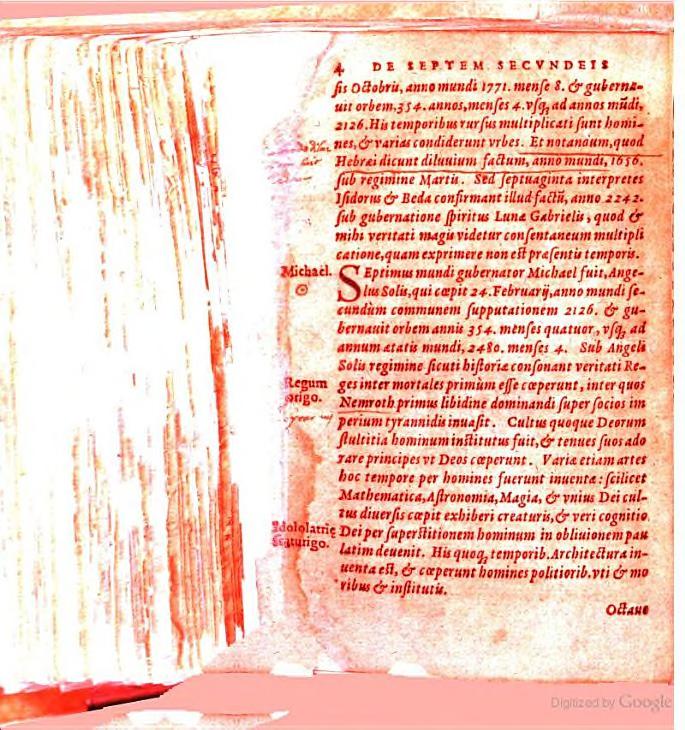 4 DE SEPTEM SECVNDEIS
sis Octobris, anno mundi 1771. mense 8. & guberna-
uit orbem. 354. annos, menses 4. vsq, ad annos mūdi,
2126. His temporibus rursus multiplicati sunt homi-
nes, & variæ condiderunt vrbes. Et notandum, quod
Hebræi dicunt diluuium factum, anno mundi, 1656.
sub regimine Martis. Sed septuaginta interpretes
Isidorus & Beda confirmant illud factū, anno 2242.
sub gubernatione spiritus Lunæ Gabrielis, quod &
mihi veritati magis videtur consentaneum multipli
catione, quam exprimere non est præsentis temporis.
Michaël.
☉
SEptimus mundi gubernator Michael fuit, Ange-
lus Solis, qui cœpit 24. Februarij, anno mundi se-
cundùm communem supputationem 2126. & gu-
bernauit orbem annis 354. menses quatuor, vsq, ad
annum ætatis mundi, 2480. menses 4. Sub Angeli
Solis regimine sicuti historiæ consonant veritati Re-
Regum
origo.
ges inter mortales primùm esse cœperunt, inter quos
Nemroth primus libidine dominandi super socios im
perium tyrannidis inuasit. Cultus quoque Deorum
stultitia hominum institutus fuit, & tenues suos ado
rare principes vt Deos cœperunt. Variæ etiam artes
hoc tempore per homines fuerunt inuentæ: scilicet
Mathematica, Astronomia, Magia, & vnius Dei cul-
tus diuersis cœpit exhiberi creaturis, & veri cognitio
Idololatrię
scaturigo.
Dei per superstitionem hominum in obliuionem pau
latim deuenit. His quoq, temporib. Architectura in-
uenta est, & cœperunt homines politiorib. vti & mo
ribus & institutis.
Octauus
Digitized by Google